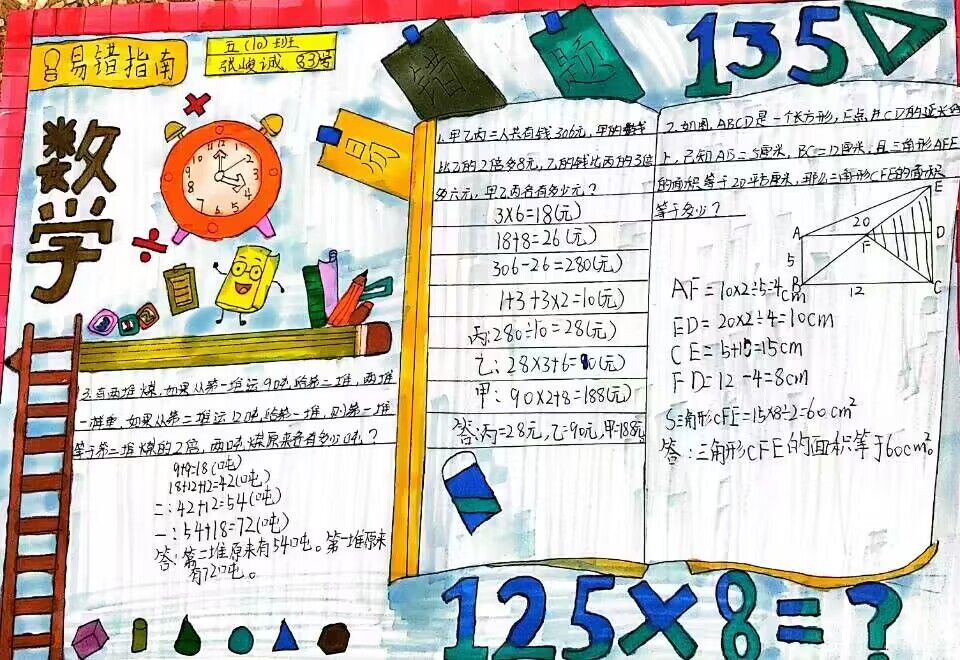 易错指南
五(10)班
张峻诚 83号
数学
错
题
易
135
1.甲乙丙三人共有钱306元,甲的钱
比乙的2倍多8元,乙的钱比丙的3倍
多六元,甲乙丙各有多少元?
3×6=18(元)
18+8=26(元)
306-26=280(元)
1+3+3×2=10(元)
丙:280÷10=28(元)
乙:28×3+6=90(元)
甲:90×2+8=188(元)
答:丙=28元,乙=90元,甲=188元。
2.如图,ABCD是一个长方形,E点在CD的延长线
上,已知AB=5厘米,BC=12厘米,且三角形AFE
的面积等于20平方厘米,那么三角形CFE的面积
等于多少?
E
20
A
D
F
5
B
12
C
AF=10×2÷5=4cm
ED=20×2÷4=10cm
CE=5+10=15cm
FD=12-4=8cm
S三角形CFE=15×8÷2=60cm²
答:三角形CFE的面积等于60cm²。
3.有两堆煤,如果从第一堆运9吨给第二堆,两堆
一样重,如果从第二堆运12吨给第一堆,则第一堆
等于第二堆煤的2倍,两吨煤原来各有多少吨?
9+9=18(吨)
18+12+12=42(吨)
二:42+12=54(吨)
一:54+18=72(吨)
答:第二堆原来有54吨。第一堆原来
有72吨。
125×8=?